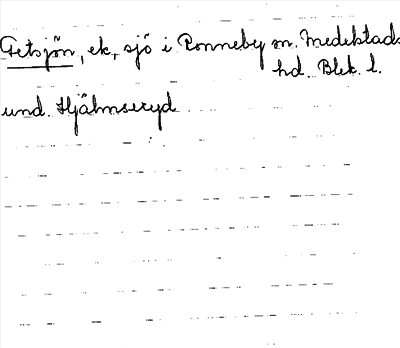 Getsjön, ek, sjö i Ronneby sn. Medelstads
hd. Blek. l.
und. Hjälmseryd